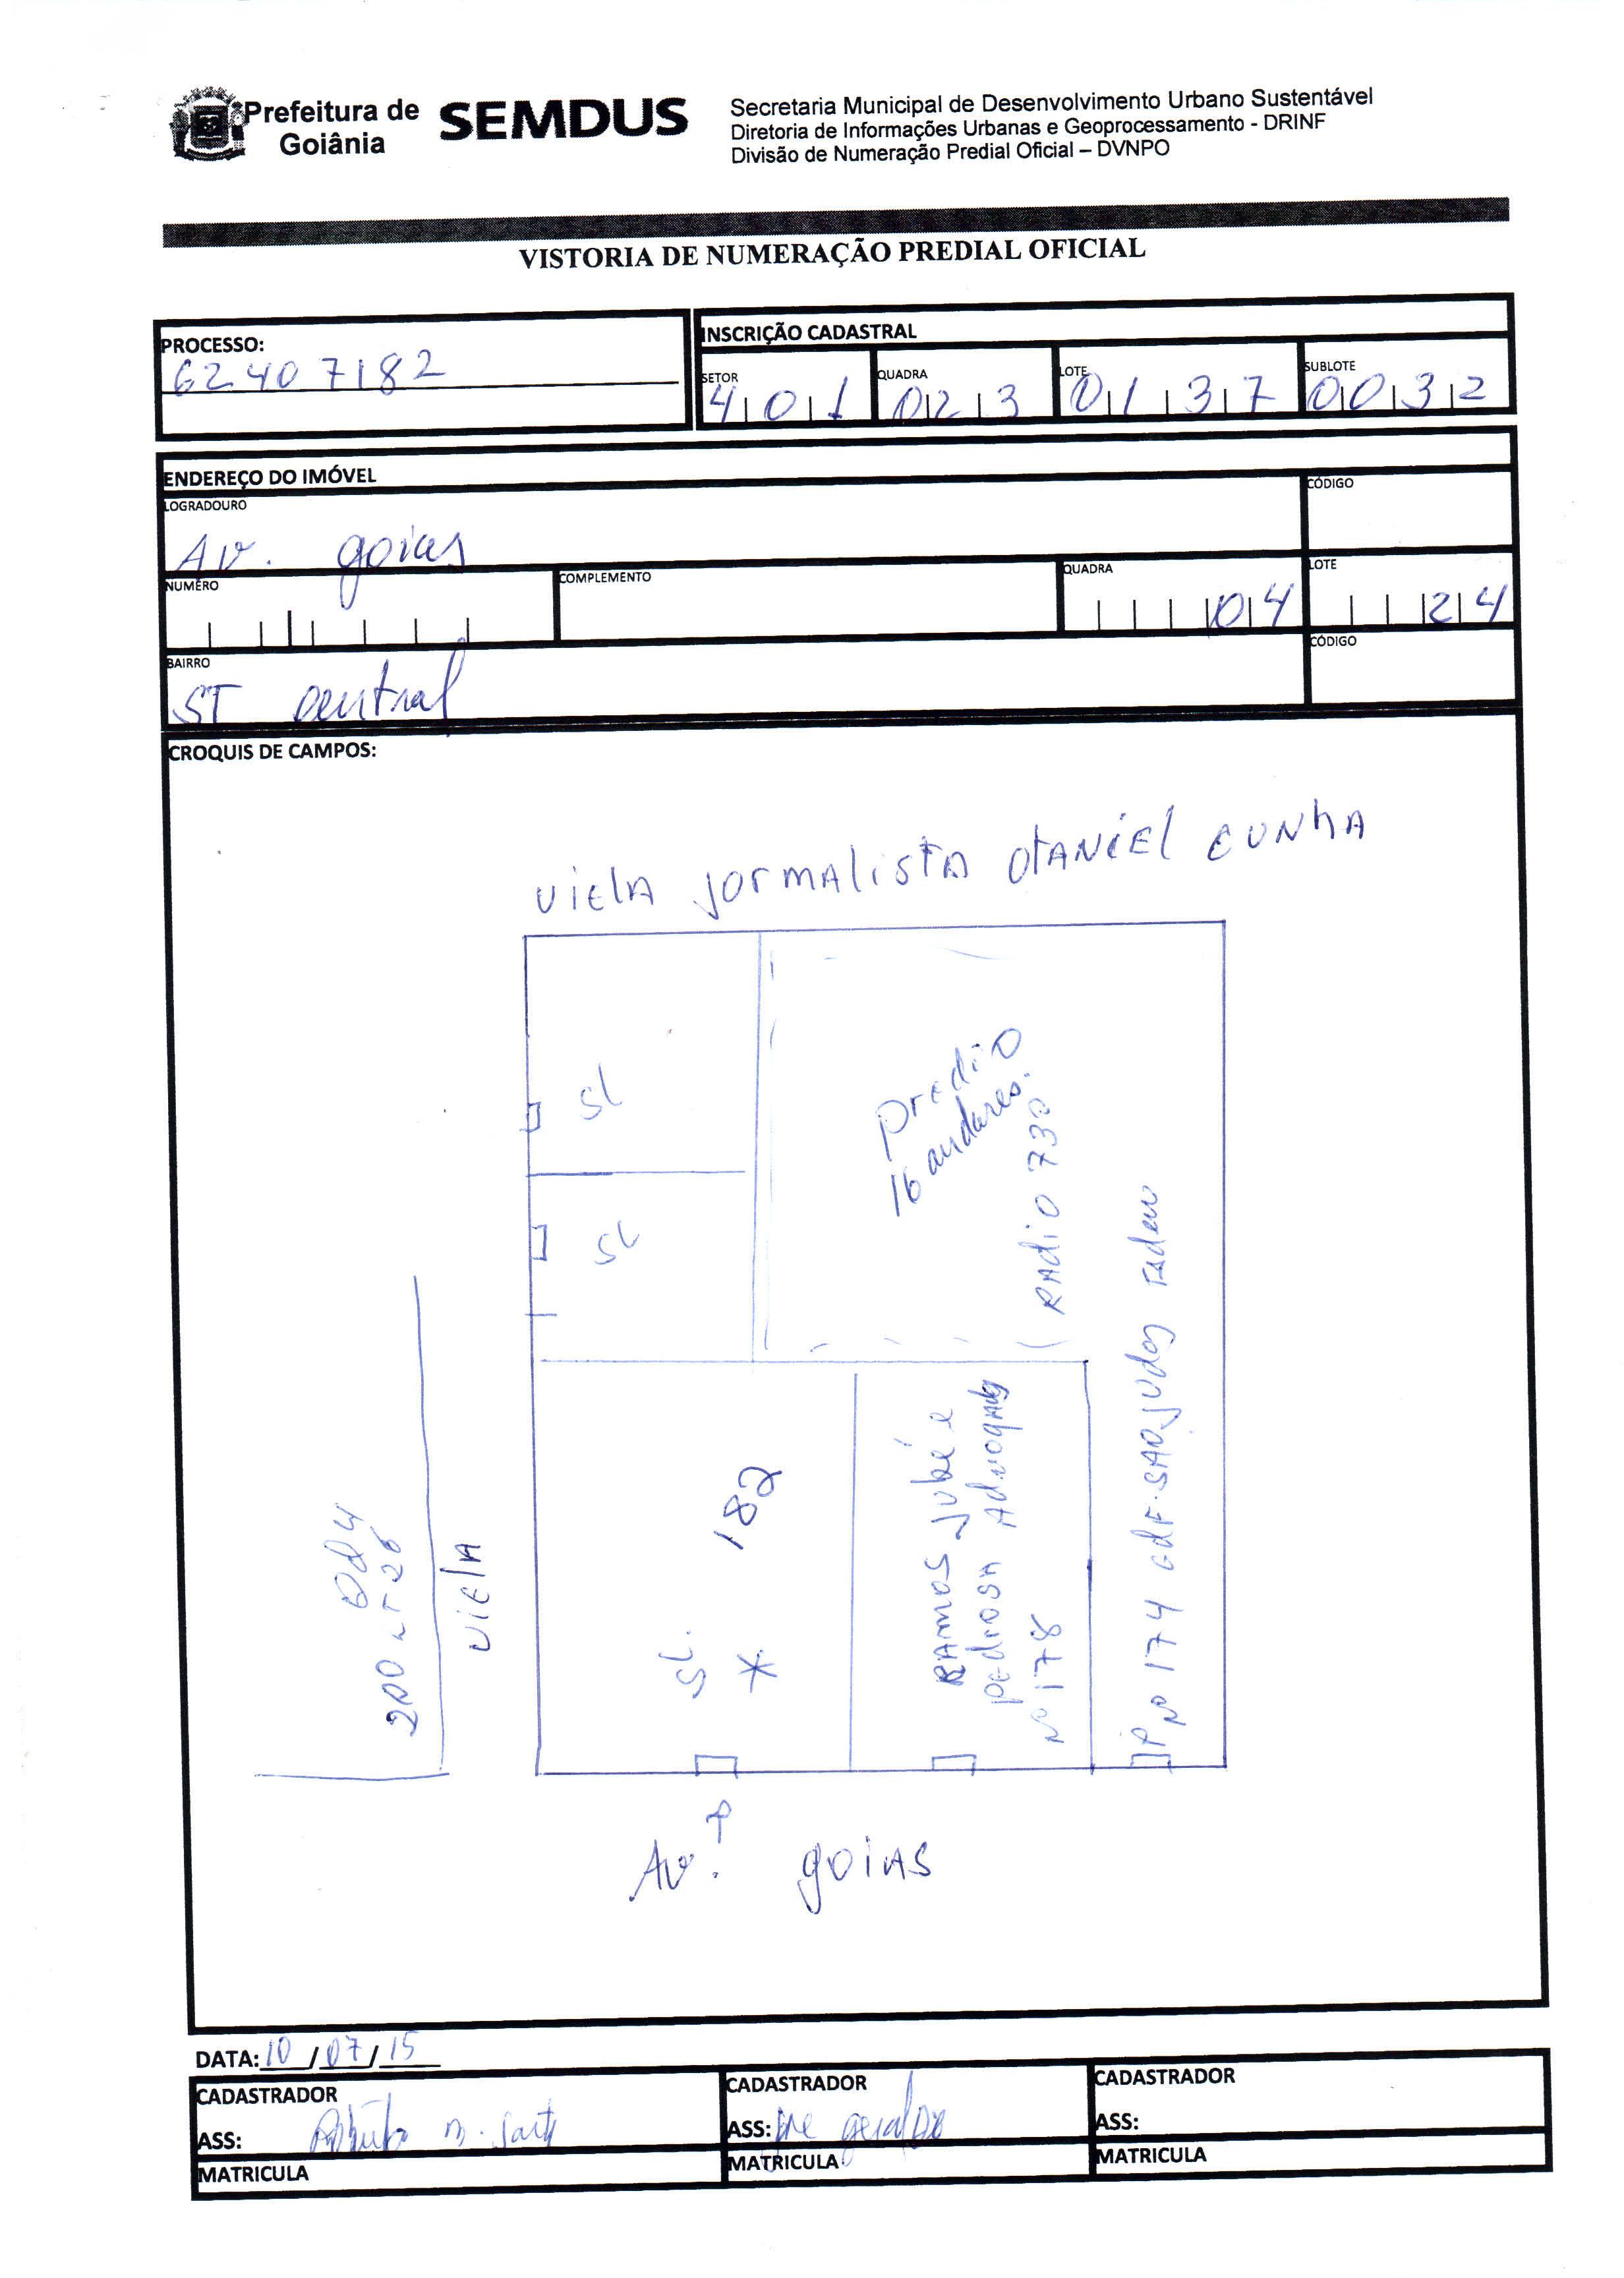 Prefeitura de Goiânia
SEMDUS
Secretaria Municipal de Desenvolvimento Urbano Sustentável
Diretoria de Informações Urbanas e Geoprocessamento - DRINF
Divisão de Numeração Predial Oficial – DVNPO
VISTORIA DE NUMERAÇÃO PREDIAL OFICIAL
PROCESSO:
62407182
INSCRIÇÃO CADASTRAL
SETOR
401
QUADRA
023
LOTE
0137
SUBLOTE
0032
ENDEREÇO DO IMÓVEL
LOGRADOURO
Av. goias
CÓDIGO
NUMERO
COMPLEMENTO
QUADRA
04
LOTE
24
BAIRRO
ST central
CÓDIGO
CROQUIS DE CAMPOS:
viela jormalista OtANiEl CUNhA
SL
SL
predio
16 andares.
(RAdio 730
Qd 4
200 LT 26
viElA
182
SL.
*
RAMOS Jubé e
pedrosa
Nº 178
Nº 174 Edf. SAO JUDAS Tadeu
Av. goiAS
DATA: 10 / 07 / 15
CADASTRADOR
ASS:
MATRICULA
CADASTRADOR
ASS: geraldo
MATRICULA
CADASTRADOR
ASS:
MATRICULA